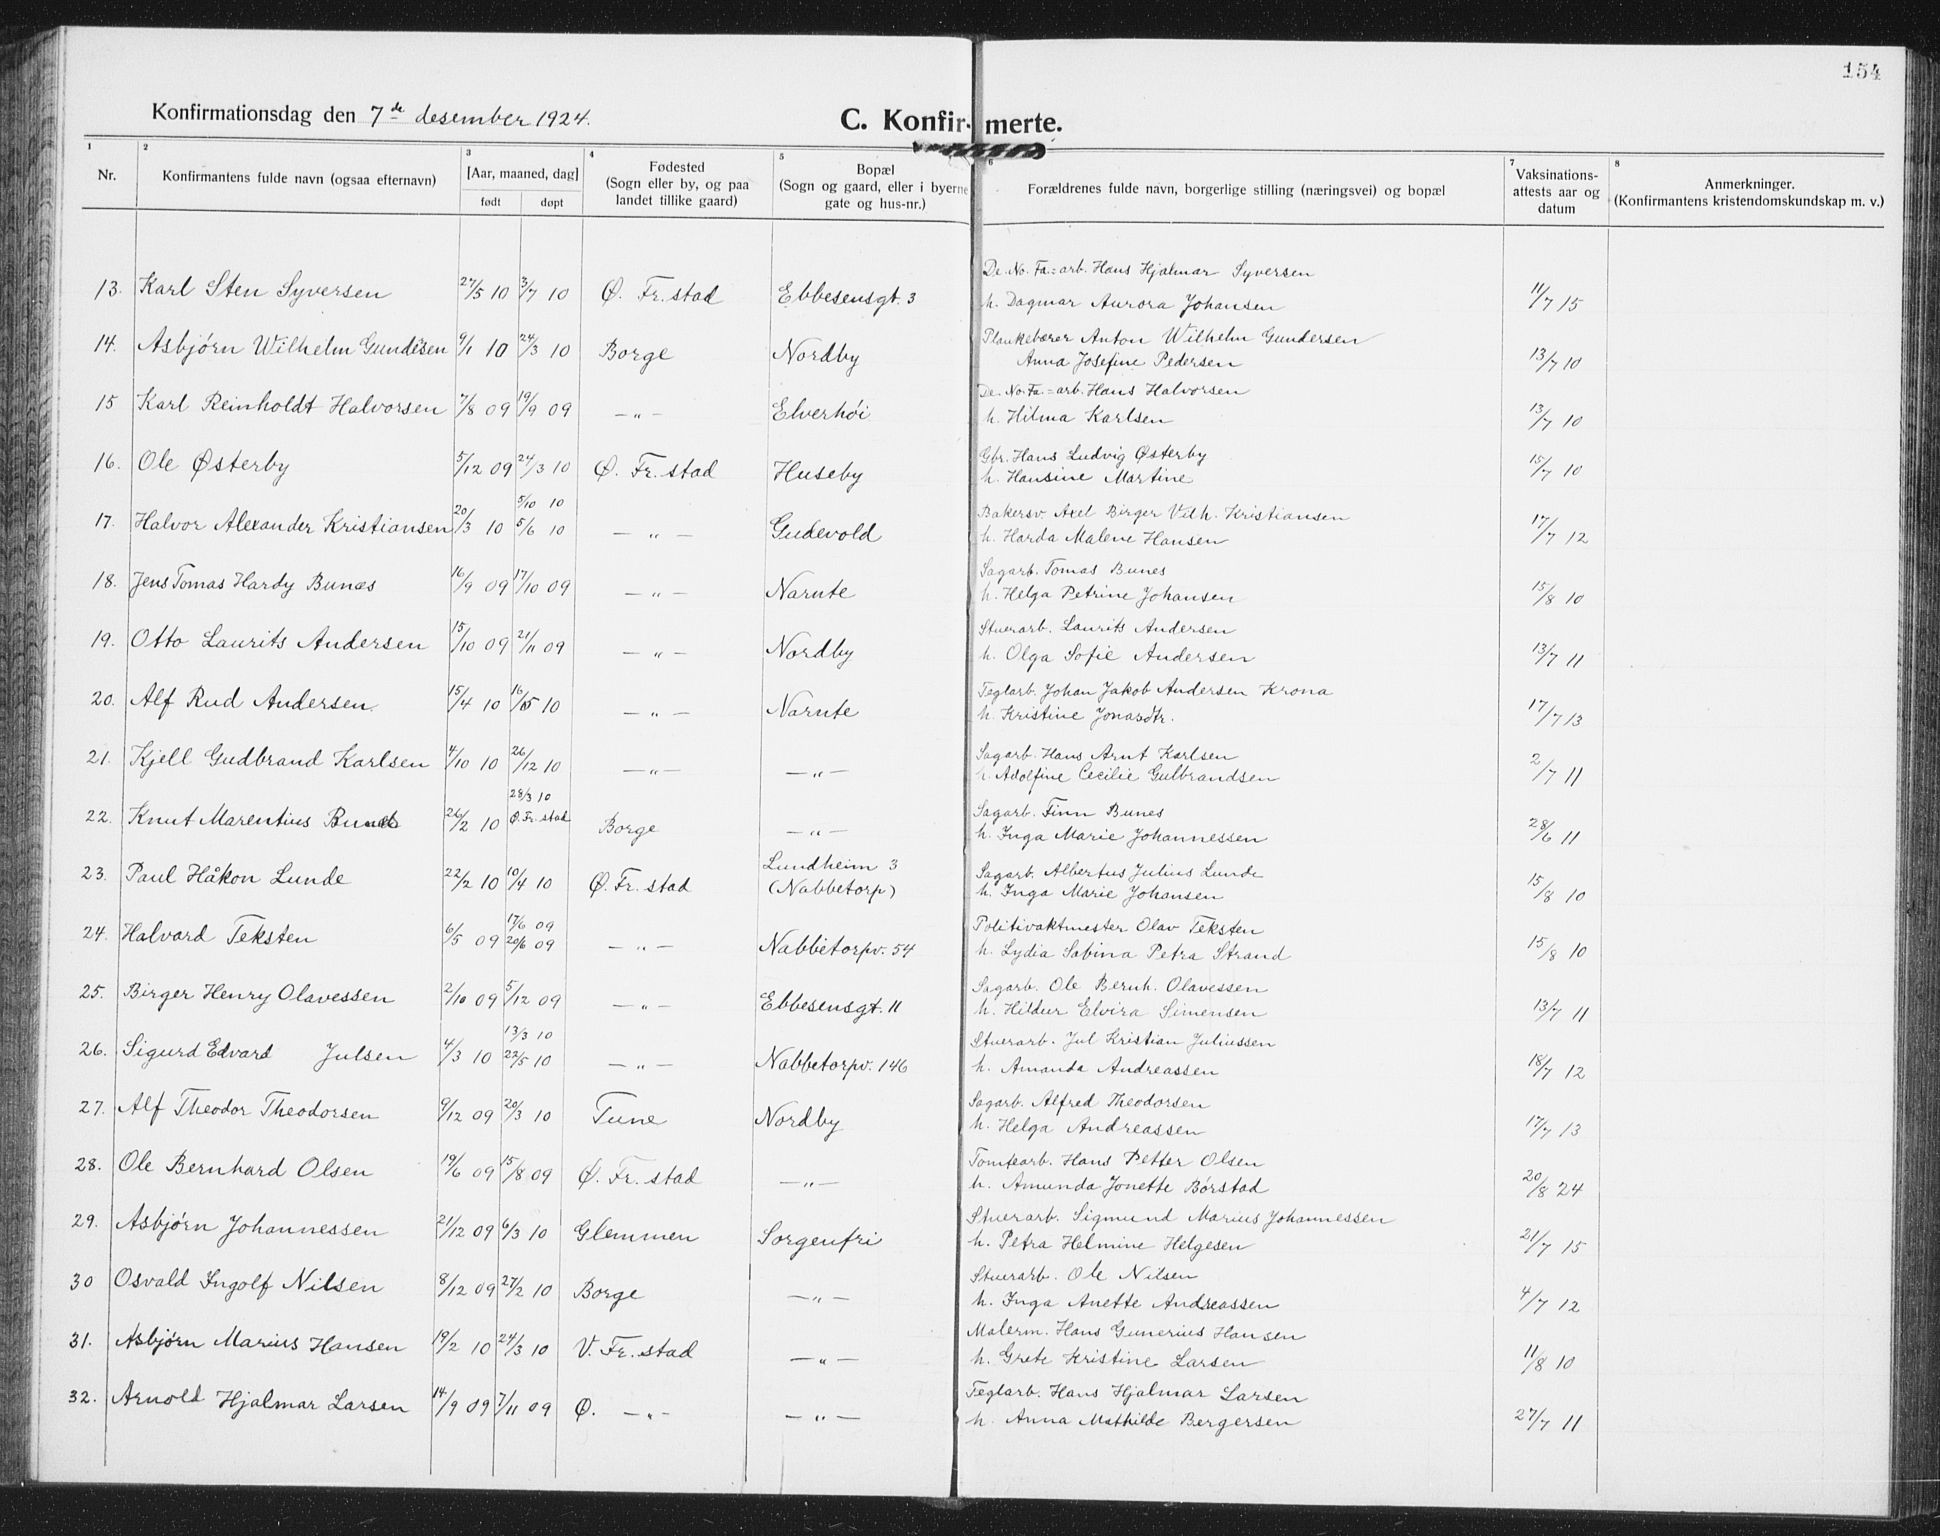 154
Konfirmationsdag den 7de desember 1924.
C. Konfirmerte.
1 2 3 4 5 6 7 8
Nr. Konfirmantens fulde navn (ogsaa efternavn) [Aar, maaned, dag] født døpt Fødested (Sogn eller by, og paa landet tillike gaard) Bopæl (Sogn og gaard, eller i byerne gate og hus-nr.) Forældrenes fulde navn, borgerlige stilling (næringsvei) og bopæl Vaksinationsattests aar og datum Anmerkninger. (Konfirmantens kristendomskundskap m. v.)
De. No. Fa.=arb. Hans Hjalmar Syversen
13. Karl Sten Syversen 27/5 10 3/7 10 Ø. Fr.stad Ebbesensgt. 3 h. Dagmar Aurora Johansen 11/7 15
Plankebærer Anton Wilhelm Gundersen
14. Asbjørn Wilhelm Gundesen 9/1 10 24/3 10 Borge Nordby Anna Josefine Pedersen 13/7 10
De. No. Fa.=arb. Hans Halvorsen
15 Karl Reinholdt Halvorsen 7/8 09 19/9 09 — „ — Elverhöi h. Hilma Karlsen 13/7 10
Gbr. Hans Ludvig Østerby
16. Ole Østerby 5/12 09 24/3 10 Ø. Fr. stad Huseby h. Hansine Martine 15/7 10
5/10 10
Bakersv. Axel Birger Vilh. Kristiansen
17. Halvor Alexander Kristiansen 20/3 10 5/6 10 — „ — Gudevold h. Harda Malene Hansen 17/7 12
Sagarb. Tomas Bunes
18. Jens Tomas Hardy Bunæs 16/9 09 17/10 09 — „ — Narnte h. Helga Petrine Johansen 15/8 10
Stuerarb. Laurits Andersen
19. Otto Laurits Andersen 15/10 09 21/11 09 — „ — Nordby h. Olga Sofie Andersen 13/7 11
Teglarb. Johan Jakob Andersen Krona
20. Alf Rud Andersen 15/4 10 16/5 10 — „ — Narnte h. Kristine Jonasdtr. 17/7 13
Sagarb. Hans Arnt Karlsen
21. Kjell Gudbrand Karlsen 4/10 10 26/12 10 — „ — — „ — h. Adolfine Cecilie Gulbrandsen 2/7 11
28/3 10
Sagarb. Finn Bunes
22. Knut Marentius Bunæs 26/2 10 Ø. Fr. stad Borge — „ — h. Inga Marie Johannessen 28/6 11
Lundheim 3
Sagarb. Albertus Julius Lunde
23. Paul Håkon Lunde 22/2 10 10/4 10 Ø. Fr. stad (Nabbetorp) h. Inga Marie Johansen 15/8 10
17/6 09
Politivaktmester Olav Teksten
24. Halvard Teksten 6/5 09 20/6 09 — „ — Nabbetorpv. 54 h. Lydia Sabina Petra Strand 15/8 10
Sagarb. Ole Bernh. Olavessen
25. Birger Henry Olavessen 2/10 09 5/12 09 — „ — Ebbesensgt. 11 h. Hildur Elvira Simensen 13/7 11
13/3 10
Stuerarb. Jul Kristian Juliussen
26. Sigurd Edvard Julsen 4/3 10 22/5 10 — „ — Nabbetorpv. 146 h. Amanda Andreassen 18/7 12
Sagarb. Alfred Theodorsen
27. Alf Theodor Theodorsen 9/12 09 20/3 10 Tune Nordby h. Helga Andreassen 17/7 13
Tomtearb. Hans Petter Olsen
28. Ole Bernhard Olsen 19/6 09 15/8 09 Ø. Fr. stad — „ — h. Amunda Jonette Börstad 20/8 24
Stuerarb. Sigmund Marius Johannessen
29. Asbjørn Johannessen 21/12 09 6/3 10 Glemmen Sorgenfri h. Petra Helmine Helgesen 21/7 15
Stuerarb. Ole Nilsen
30 Osvald Ingolf Nilsen 8/12 09 27/2 10 Borge — „ — h. Inga Anette Andreassen 4/7 12
Malerm. Hans Gunerius Hansen
31. Asbjørn Marius Hansen 19/2 10 24/3 10 V. Fr. stad — „ — h. Grete Kristine Larsen 11/8 10
Teglarb. Hans Hjalmar Larsen
32. Arnold Hjalmar Larsen 14/9 09 7/11 09 Ø. — „ — — „ — h. Anna Mathilde Bergersen 27/7 11